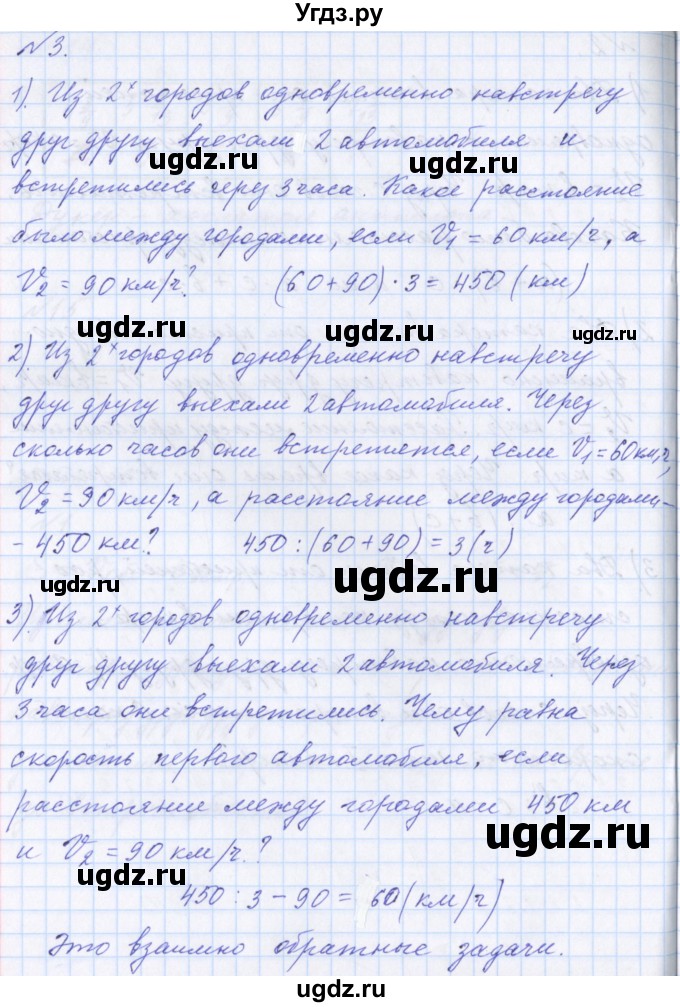 Угдз.ру
№3.
1). Из 2ˣ городов одновременно навстречу
друг другу выехали 2 автомобиля и
ugdz.ru ugdz.ru
встретились через 3 часа. Какое расстояние
было между городами, если V₁ = 60 км/ч, а
V₂ = 90 км/ч? (60+90)·3 = 450 (км)
ugdz.ru ugdz.ru
2). Из 2ˣ городов одновременно навстречу
друг другу выехали 2 автомобиля. Через
ugdz.ru
сколько часов они встретятся, если V₁ = 60 км/ч,
V₂ = 90 км/ч, а расстояние между городами -
ugdz.ru
- 450 км? 450 : (60+90) = 3 (ч)
ugdz.ru ugdz.ru
3). Из 2ˣ городов одновременно навстречу
друг другу выехали 2 автомобиля. Через
ugdz.ru
3 часа они встретились. Чему равна
скорость первого автомобиля, если
расстояние между городами 450 км
ugdz.ru
и V₂ = 90 км/ч?
ugdz.ru
450 : 3 - 90 = 60 (км/ч)
Это взаимно обратные задачи.
ugdz.ru